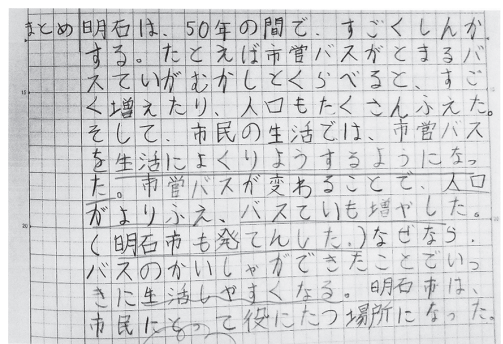 まとめ 明石は、50年の間で、すごくしんか
する。たとえば市営バスがとまるバ
スていがむかしとくらべると、すご
く増えたり、人口もたくさんふえた。
そして、市民の生活では、市営バス
を生活によくりようするようになっ
た。市営バスが変わることで、人口
がよりふえ、バスていも増やした。
(明石市も発てんした。)なぜなら、
バスのかいしゃができたことでいっ
きに生活しやすくなる。明石市は、
市民にとって役にたつ場所になった。